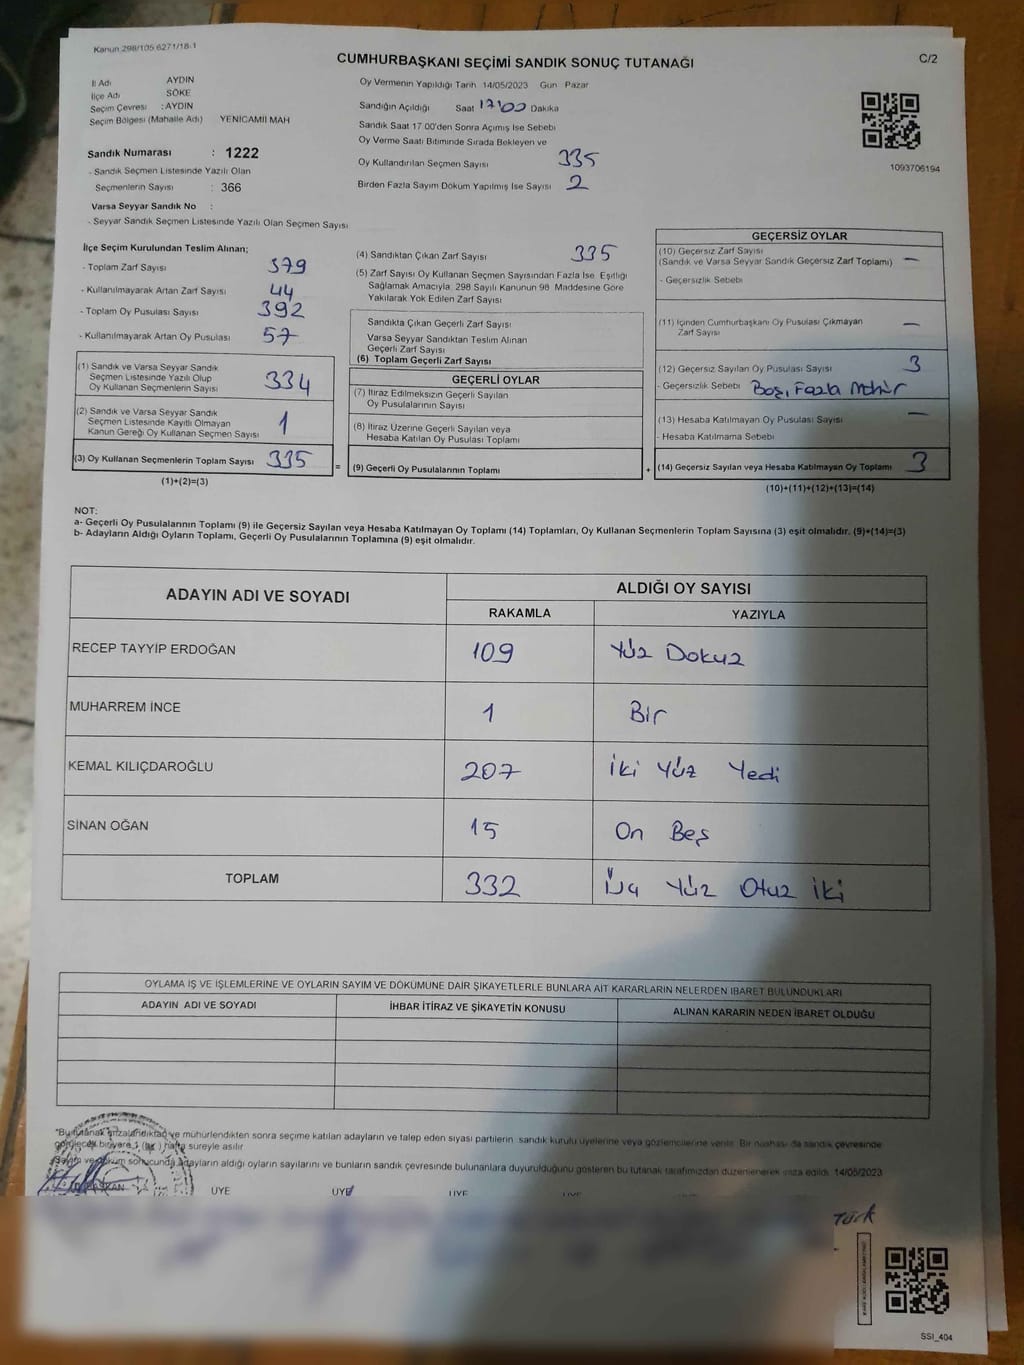 Kanun 298/105 6271/18-1
CUMHURBAŞKANI SEÇİMİ SANDIK SONUÇ TUTANAĞI
C/2
İl Adı AYDIN
İlçe Adı SÖKE
Seçim Çevresi : AYDIN
Seçim Bölgesi (Mahalle Adı) YENİCAMİİ MAH
Sandık Numarası : 1222
- Sandık Seçmen Listesinde Yazılı Olan
Seçmenlerin Sayısı : 366
Varsa Seyyar Sandık No :
- Seyyar Sandık Seçmen Listesinde Yazılı Olan Seçmen Sayısı
Oy Vermenin Yapıldığı Tarih 14/05/2023 Gün Pazar
Sandığın Açıldığı Saat 17:00 Dakika
Sandık Saat 17 00'den Sonra Açımış İse Sebebi
Oy Verme Saati Bitiminde Sırada Bekleyen ve
Oy Kullandırılan Seçmen Sayısı 335
Birden Fazla Sayım Döküm Yapılmış İse Sayısı 2
1093706194
İlçe Seçim Kurulundan Teslim Alınan;
- Toplam Zarf Sayısı 379
- Kullanılmayarak Artan Zarf Sayısı 44
- Toplam Oy Pusulası Sayısı 392
- Kullanılmayarak Artan Oy Pusulası 57
(1) Sandık ve Varsa Seyyar Sandık
Seçmen Listesinde Yazılı Olup
Oy Kullanan Seçmenlerin Sayısı 334
(2) Sandık ve Varsa Seyyar Sandık
Seçmen Listesinde Kayıtlı Olmayan
Kanun Gereği Oy Kullanan Seçmen Sayısı 1
(3) Oy Kullanan Seçmenlerin Toplam Sayısı 335
(1)+(2)=(3)
(4) Sandıktan Çıkan Zarf Sayısı 335
(5) Zarf Sayısı Oy Kullanan Seçmen Sayısından Fazla İse Eşitliği
Sağlamak Amacıyla, 298 Sayılı Kanunun 98 Maddesine Göre
Yakılarak Yok Edilen Zarf Sayısı
Sandıkta Çıkan Geçerli Zarf Sayısı
Varsa Seyyar Sandıktan Teslim Alınan
Geçerli Zarf Sayısı
(6) Toplam Geçerli Zarf Sayısı
GEÇERLİ OYLAR
(7) İtiraz Edilmeksizin Geçerli Sayılan
Oy Pusulalarının Sayısı
(8) İtiraz Üzerine Geçerli Sayılan veya
Hesaba Katılan Oy Pusulası Toplamı
= (9) Geçerli Oy Pusulalarının Toplamı +
GEÇERSİZ OYLAR
(10) Geçersiz Zarf Sayısı
(Sandık ve Varsa Seyyar Sandık Geçersiz Zarf Toplamı) —
- Geçersizlik Sebebi
(11) İçinden Cumhurbaşkanı Oy Pusulası Çıkmayan
Zarf Sayısı —
(12) Geçersiz Sayılan Oy Pusulası Sayısı 3
- Geçersizlik Sebebi Boş, Fazla Mühür
(13) Hesaba Katılmayan Oy Pusulası Sayısı —
- Hesaba Katılmama Sebebi
(14) Geçersiz Sayılan veya Hesaba Katılmayan Oy Toplamı 3
(10)+(11)+(12)+(13)=(14)
NOT:
a- Geçerli Oy Pusulalarının Toplamı (9) ile Geçersiz Sayılan veya Hesaba Katılmayan Oy Toplamı (14) Toplamları, Oy Kullanan Seçmenlerin Toplam Sayısına (3) eşit olmalıdır. (9)+(14)=(3)
b- Adayların Aldığı Oyların Toplamı, Geçerli Oy Pusulalarının Toplamına (9) eşit olmalıdır.
ADAYIN ADI VE SOYADI
ALDIĞI OY SAYISI
RAKAMLA YAZIYLA
RECEP TAYYİP ERDOĞAN 109 Yüz Dokuz
MUHARREM İNCE 1 Bir
KEMAL KILIÇDAROĞLU 207 İki Yüz Yedi
SİNAN OĞAN 15 On Beş
TOPLAM 332 Üç Yüz Otuz İki
OYLAMA İŞ VE İŞLEMLERİNE VE OYLARIN SAYIM VE DÖKÜMÜNE DAİR ŞİKAYETLERLE BUNLARA AİT KARARLARIN NELERDEN İBARET BULUNDUKLARI
ADAYIN ADI VE SOYADI
İHBAR İTİRAZ VE ŞİKAYETİN KONUSU
ALINAN KARARIN NEDEN İBARET OLDUĞU
*Bu tutanak imzalandıktan ve mühürlendikten sonra seçime katılan adayların ve talep eden siyasi partilerin sandık kurulu üyelerine veya gözlemcilerine verilir. Bir nüshası da sandık çevresinde
görülecek bir yere 1 (bir) hafta süreyle asılır
Sayım ve döküm sonucunda adayların aldığı oyların sayılarını ve bunların sandık çevresinde bulunanlara duyurulduğunu gösteren bu tutanak tarafımızdan düzenlenerek imza edildi. 14/05/2023
BAŞKAN ÜYE ÜYE ÜYE ÜYE
Türk
SSI_404